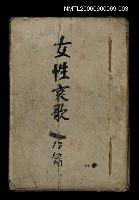 NMTL20000900009-003
女性哀歌